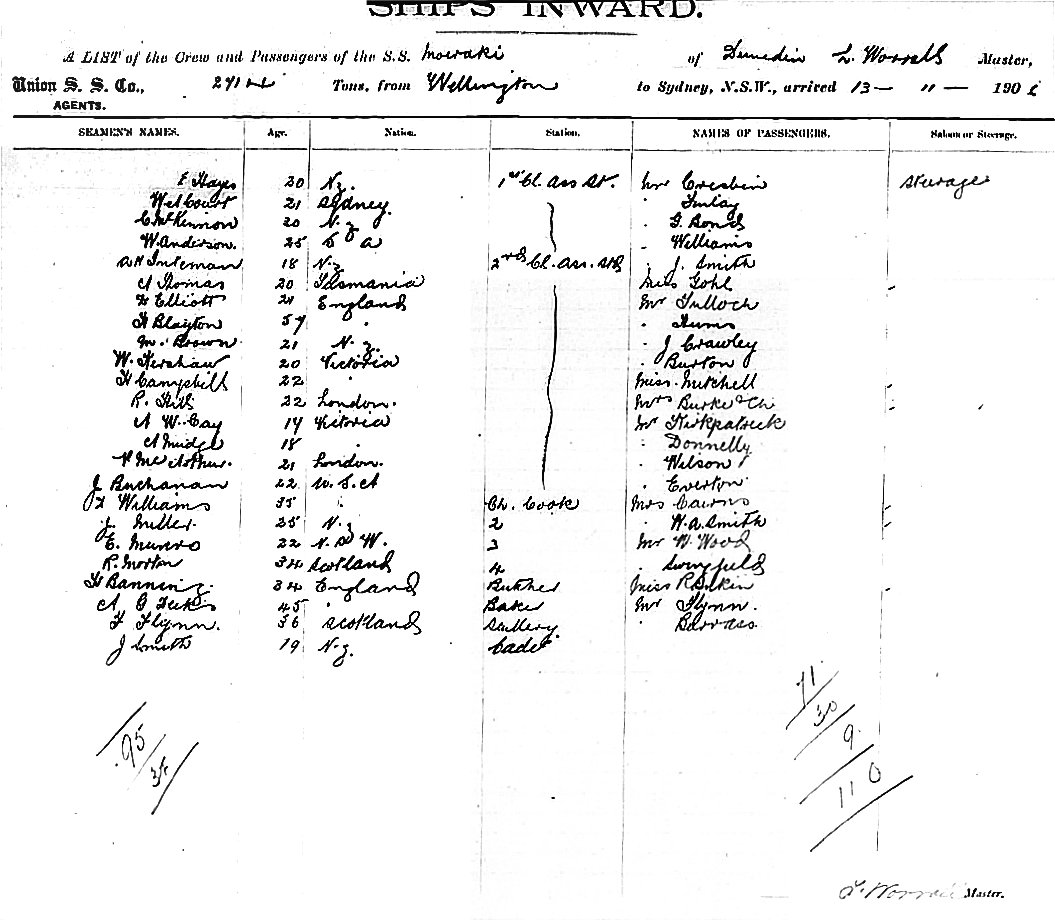 SHIPS INWARD.
A LIST of the Crew and Passengers of the S.S. Moeraki of Dunedin L. Worrall Master,
Union S. S. Co., AGENTS. Tons, from Wellington to Sydney, N.S.W., arrived 13 — 11 — 190
SEAMEN'S NAMES. Age. Nation. Station. NAMES OF PASSENGERS. Saloon or Steerage.
E Hayes 20 N.z. 1st Cl. Ass St. Mr Cresbin Steerage
Court 21 Sydney. " Finlay
C McKinnon 20 N.z " G. Bond
W. Anderson. 25 " Williams
18 N.z 2nd Cl. Ass. Std " J. Smith
A Thomas 20 Tasmania Miss Gohl
H Elliott 21 England Mr Tulloch
H Blayton 57 " "
M. Brown 21 N.z. " J Crawley
W. Kershaw 20 Victoria " Burton
H Campbell 22 " Miss Mitchell
R. Hill 22 London. Mrs Burke & Ch
A W. Cay 19 Victoria Mr Kirkpatrick
A Mudge 18 " " Donnelly
McArthur. 21 London. " Wilson
J Buchanan 22 U.S.A " Everton
F Williams 35 " Ch. Cook Mrs Cairns
J. Miller. 25 N.z 2 " W.A. Smith
E. Munro 22 N.S.W. 3 Mr W. Wood
R. Morton 34 Scotland 4 " Swingfield
H Banning. 34 England Butcher Miss R
A. G 45 " Baker Mr Flynn.
F Flynn. 36 Scotland Scullery " Barrass
J Smith 19 N.z. Cadet
71
30
95
9.
110
Worrall Master.